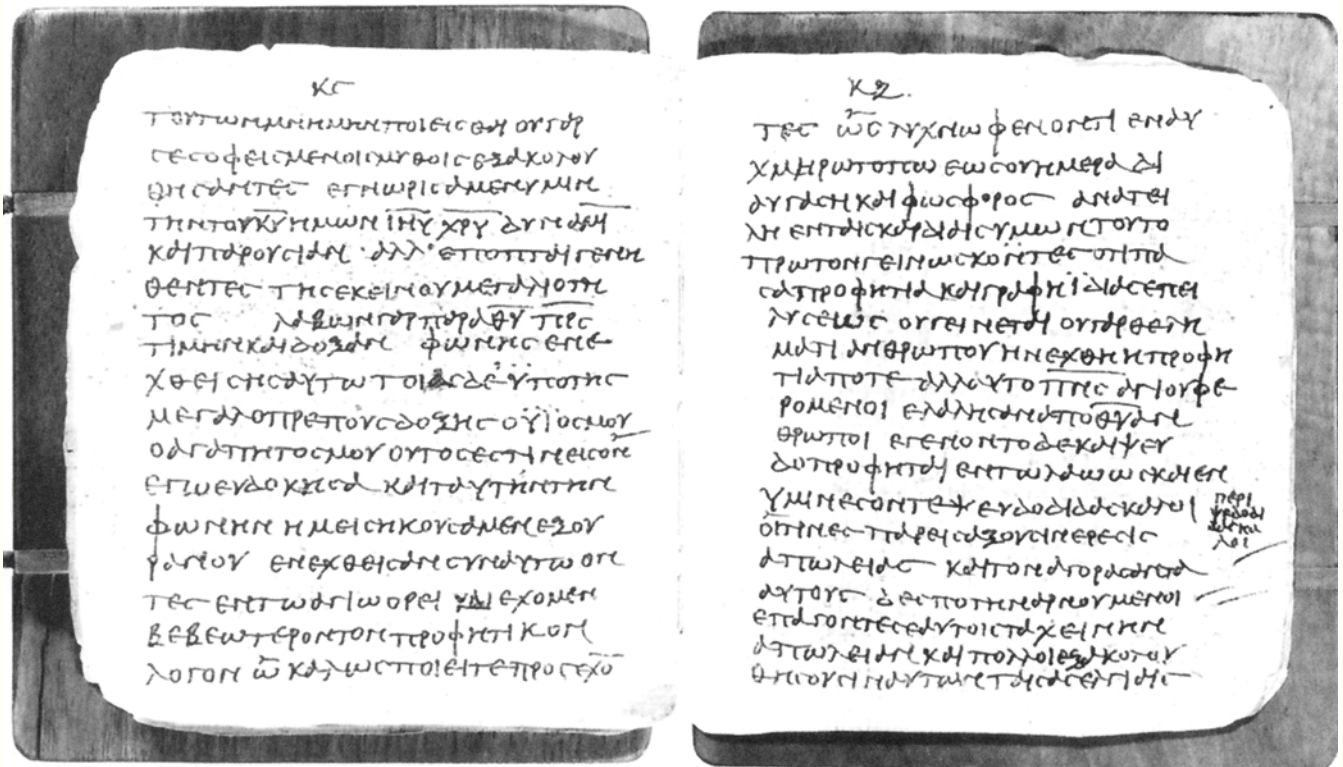 κϛ
τουτωνμνημηνποιειϲθαι ουγαρ
ϲεϲοφειϲμενοιϲμυθοιϲεξακολου
θηϲαντεϲ εγνωριϲαμενυμιν
τηντουκ̅υ̅ημωνι̅η̅υ̅ χ̅ρ̅υ̅ δυναμι
καιπαρουϲιαν αλλ’ εποπταιγενη
θεντεϲ τηϲεκεινουμεγαλιοτη
τοϲ λαβωνγαρπαραθ̅υ̅ π̅ρ̅ϲ̅
τιμηνκαιδοξαν φωνηϲενε
χθειϲηϲαυτωτοιαϲδεϋποτηϲ
μεγαλοπρεπουϲδοξηϲουϊοϲμου
οαγαπητοϲμουουτοϲεϲτινειϲον
εγωευδοκηϲα καιταυτηντην
φωνην ημειϲηκουϲαμενεξου
ρανου ενεχθειϲανϲυναυτωον
τεϲ εντωαγιωορει και εχομεν
βεβεωτεροντονπροφητικον
λογον ω̅ καλωϲποιειτεπροϲεχο̅
κζ.
τεϲ ωϲ λυχνωφενοντι εναυ
χμηρωτοπω εωϲουημερα δι
αυγαϲηκαιφωϲφοροϲ ανατει
λη ενταιϲκαρδιαιϲυμωντουτο
πρωτονγεινωϲκοντεϲ οτιπα
ϲαπροφητιακαιγραφηϊδιαϲεπει
λυϲεωϲ ουγεινεται ουγαρθελη
ματι ανθρωπουηνεχθηηπροφη
τιαποτε αλλαυποπ̅ν̅ϲ̅ αγιουφε
ρομενοι ελαληϲαναποθ̅υ̅αν
θρωποι εγενοντοδεκαιψευ
δοπροφηται εντωλαωωϲκαιεν
ϋμινεϲοντεψευδοδιδαϲκαλοι
περι
ψεδοδι
δαϲκα
λοι
οτινεϲ παρειϲαξουϲινερεϲιϲ
απωλειαϲ καιτοναγοραϲαντα
αυτουϲ δεϲποτηναρνουμενοι
επαγοντεϲεαυτοιϲταχεινην
απωλειαν καιπολλοιεξακολου
θηϲουϲιναυτωνταιϲαϲελγιαιϲ